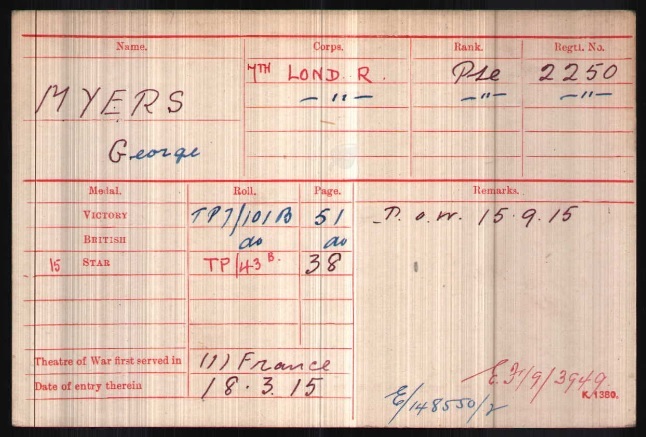 Name. Corps. Rank. Regtl. No.
7TH LOND. R. Pte 2250
MYERS — " — — " — — " —
George
Medal. Roll. Page. Remarks.
VICTORY TP7/101B 51 D. o. w. 15.9.15
BRITISH do do
15 STAR TP/43 B. 38
Theatre of War first served in (1) France
Date of entry therein 18.3.15
K. 1380.
E/148550/2